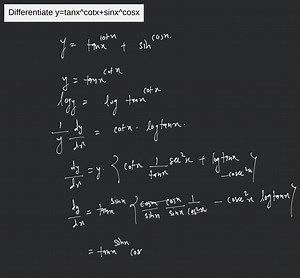 Differentiate y=tanx^cotx+sinx^cosx
y = tanx^cotx + sin^cosx.
y = tanx^cotx
logy = log tanx^cotx
1/y dy/dx = cotx. logtanx.
dy/dx = y. { cotx 1/tanx sec²x + logtanx - cosec²x }
dy/dx = tanx^sinx { cosx/sinx cosx/sinx 1/cos²x - cosec²x logtanx }
= tanx^sinx cos